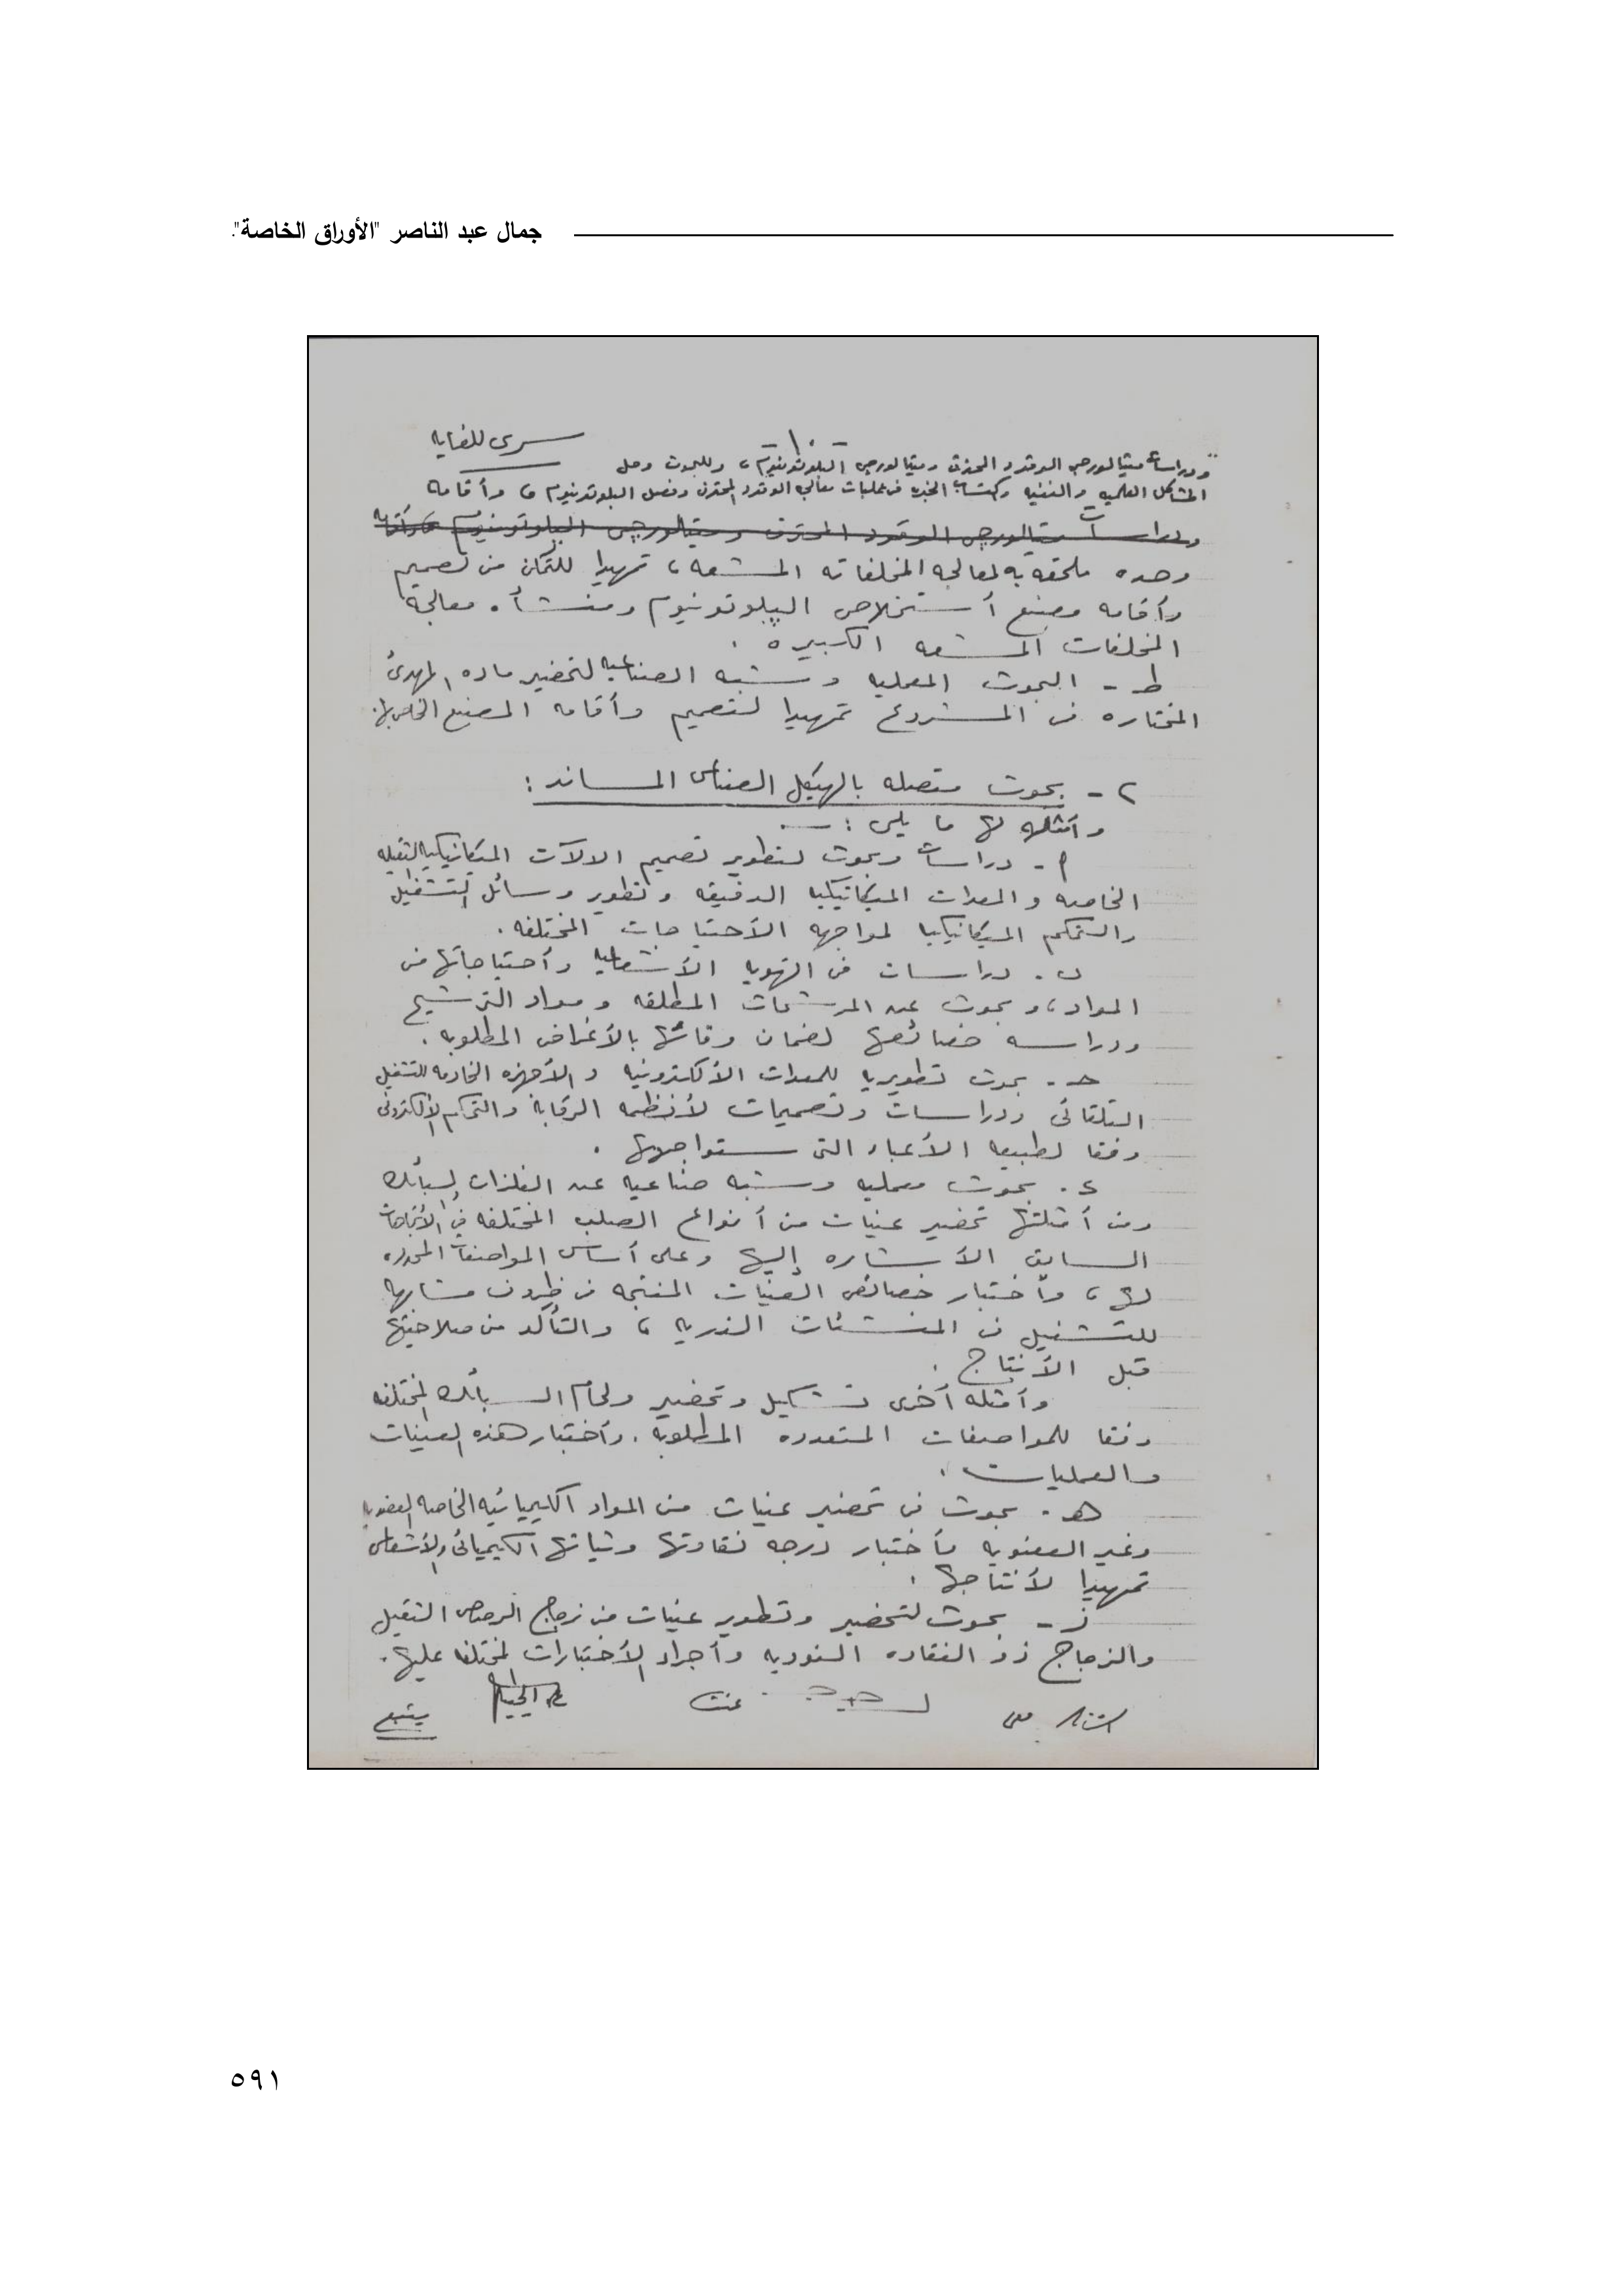 جمال عبد الناصر "الأوراق الخاصة".
- ١٠ -
سرى للغايه
ودراسات ميتالورجى الوقود المحترق وميتالورجى البلوتونيوم، وللبحوث وحل
المشاكل العلميه والفنيه وكتساب الخبره فى عمليات معالجه الوقود المحترق وفصل البلوتونيوم، وأقامه
ودراسات ميتالورجى الوقود المحترق وميتالورجى البلوتونيوم وأقامه
وحده ملحقه به لمعالجه المخلفات المشعه، تمهيدا للتمكن من تصميم
وأقامه مصنع أستخلاص البلوتونيوم ومنشأه معالجة
المخلفات المشعه الكبيره.
ط - البحوث المعمليه وشبه الصناعيه لتحضير ماده المهدئ
المختاره فى المشروع تمهيدا لتصميم وأقامه المصنع الخاص بها.
٢ - بحوث متصله بالهيكل الصناعى المساند:
وأمثله لها ما يلى :-
أ - دراسات وبحوث لتطوير تصميم الالآت الميكانيكيه الثقيله
الخاصه والمعدات الميكانيكيه الدقيقه وتطوير وسائل التشغيل
والتحكم الميكانيكيا لمواجهه الأحتياجات المختلفه.
ب - دراسات فى التهويه الأشعاعيه وأحتياجاتها من
المواد، وبحوث عن المرشحات المطلقه ومواد الترشيح
ودراسه خصائصها لضمان وفائها بالأغراض المطلوبه.
حـ - بحوث تطويريه للمعدات الألكترونيه والأجهزه الخادمه للتشغيل
التلقائى ودراسات وتصميمات لأنظمه الرقابة والتحكم الألكترونى
وفقا لطبيعه الأعباء التى ستواجهها.
د - بحوث معمليه وشبه صناعيه عن الفلزات والسبائك
ومن أمثلتها تحضير عينات من أنواع الصلب المختلفه فى الأتجاهات
السابق الأشاره إليها وعلى أساس المواصفات المحدده
لها، وأختبار خصائص العينات المنتجه فى ظروف مشابهه
للتشغيل فى المنشئات الذريه، والتأكد من صلاحيتها
قبل الأنتاج.
وأمثله أخرى تشكيل وتحضير ولحام السبائك المختلفه
وفقا للمواصفات المتعدده المطلوبه. وأختبار هذه العينات
والعمليات.
هـ - بحوث فى تحضير عينات من المواد الكيميائيه الخاصه العضويه
وغير العضويه وأختبار درجه نقاوتها وثباتها الكيميائى والأشعاعى
تمهيدا لأنتاجها.
ز - بحوث لتحضير وتطوير عينات من زجاج الرصاص الثقيل
والزجاج ذو النقاوه النوويه وأجراء الأختبارات المختلفه عليها.
يتبع
٥٩١